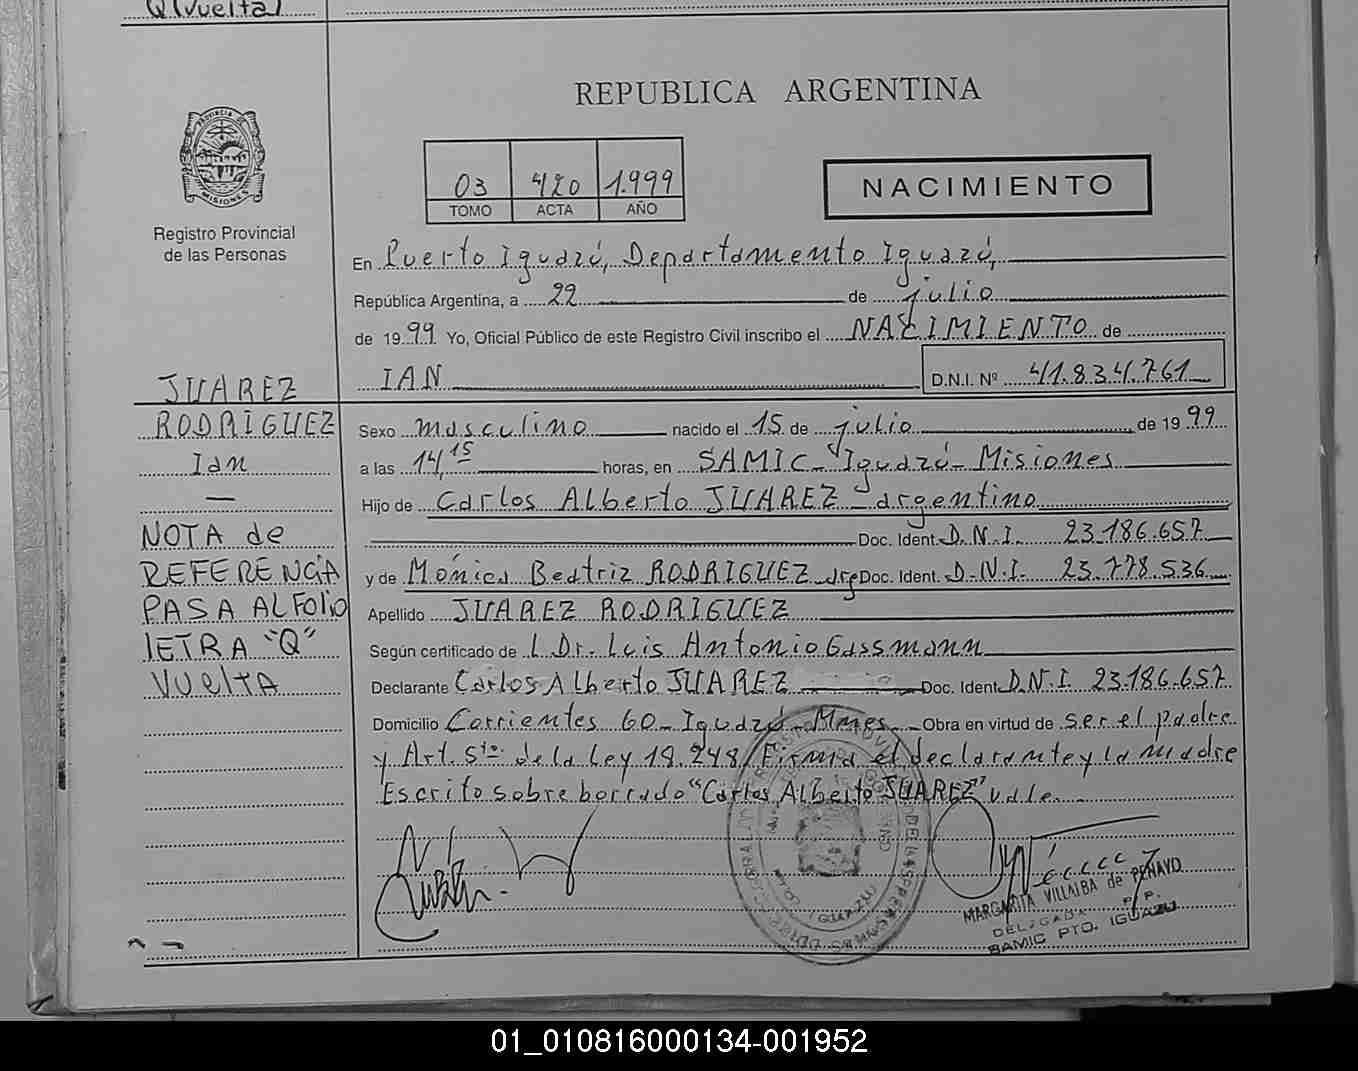 Q(Vuelta)
REPUBLICA ARGENTINA
PROVINCIA DE MISIONES
Registro Provincial
de las Personas
03 420 1.999
TOMO ACTA AÑO
NACIMIENTO
En Puerto Iguazú, Departamento Iguazú,
República Argentina, a 22 de julio
de 1999 Yo, Oficial Público de este Registro Civil inscribo el NACIMIENTO de
IAN D.N.I. Nº 41.834.761
JUAREZ
RODRIGUEZ
Ian
—
NOTA de
REFERENCIA
PASA AL FOLIO
LETRA "Q"
VUELTA
Sexo masculino nacido el 15 de julio de 1999
a las 14,15 horas, en SAMIC - Iguazú - Misiones
Hijo de Carlos Alberto JUAREZ - argentino
Doc. Ident. D.N.I. 23.186.657
y de Mónica Beatriz RODRIGUEZ - arg Doc. Ident. D.N.I. 23.778.536
Apellido JUAREZ RODRIGUEZ
Según certificado de l Dr. Luis Antonio Gassmann
Declarante Carlos Alberto JUAREZ Doc. Ident. D.N.I. 23.186.657
Domicilio Corrientes 60 - Iguazú - Mnes - Obra en virtud de ser el padre
y Art. 5to de la Ley 18.248/ Firma el declarante y la madre
Escrito sobre borrado "Carlos Alberto JUAREZ" vale.
MARGARITA VILLALBA de PENAYO
DELEGADA R. P. P.
SAMIC PTO. IGUAZU
01_010816000134-001952